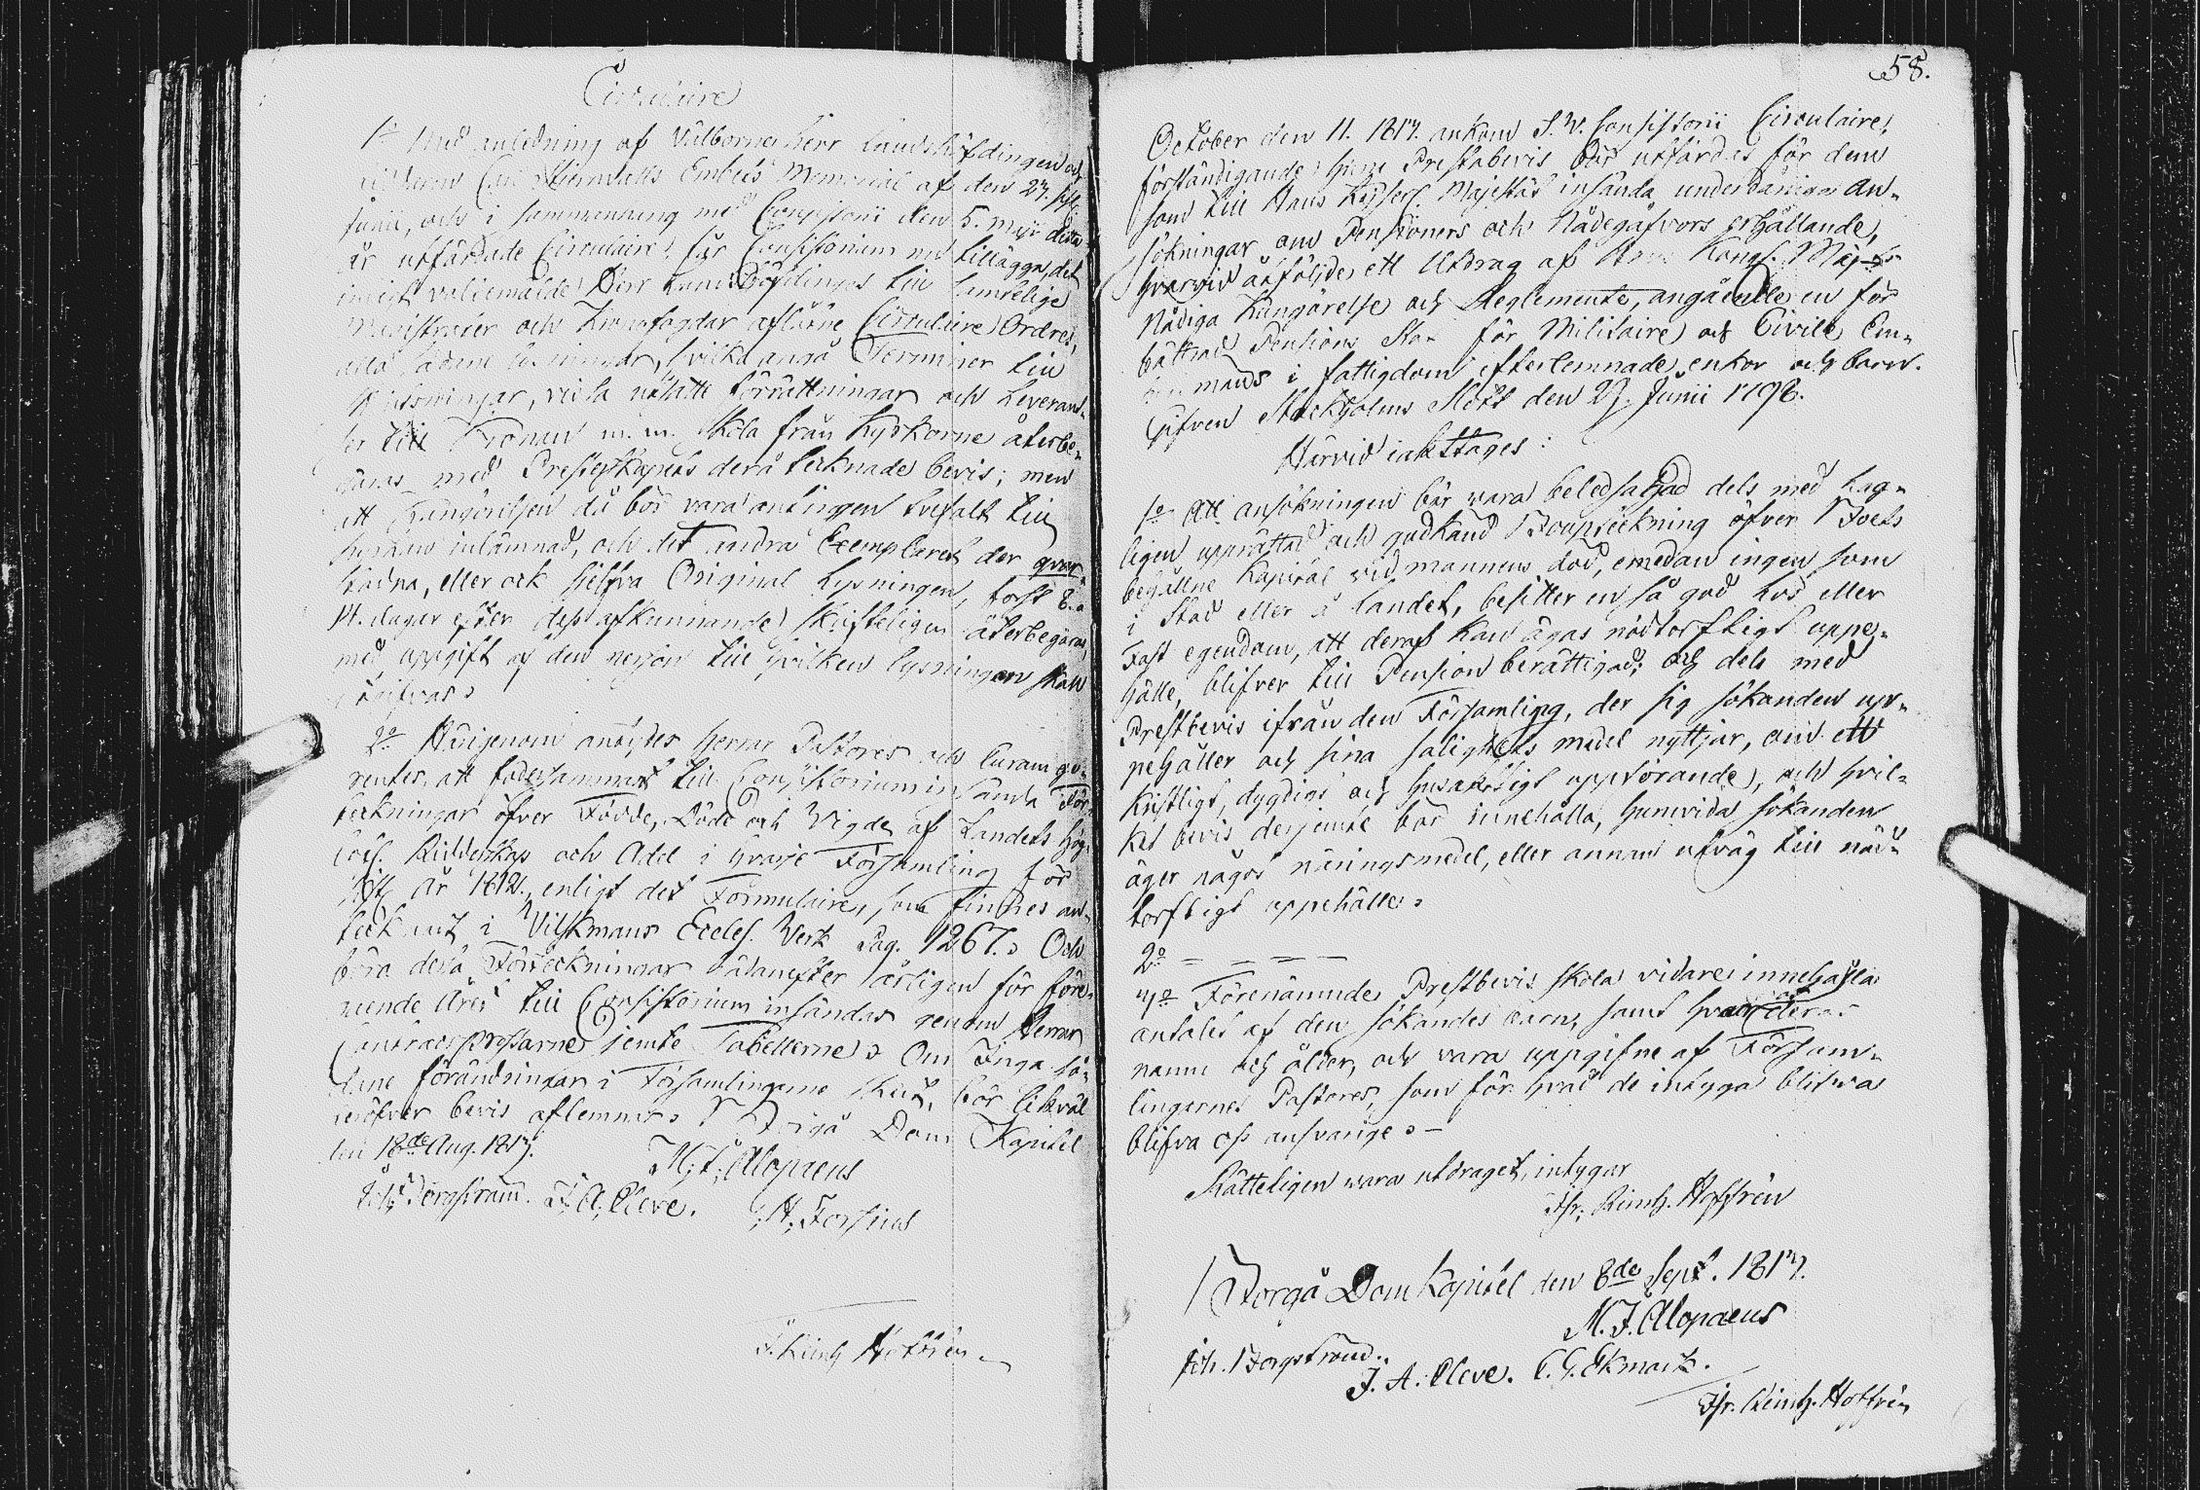 Circulaire
1o Med anledning af Välborne Herr Landshöfdingen och
Riddaren Carl Stjernvalls Embets Memorial af den 27. sistl.
Junii, och i sammenning med Consistorii den 5. Maji detta
år utfärdade Circulaire, får Consistorium nu tillägga, det
Herr Landshöfdingens till samtelige
Magistrater och Kronofogdar aflåtne Circulaire Ordres,
alla sådane lysningar, hvilka angå Terminer till
vissa utsatte förrättningar och Leverant-
ser till Kronan m. m. skola från Kyrkorne återbe-
gäras med Presterskapets derå tecknade bevis; men
att Kungörelsen då bör vara antingen tvefalt till
inlämnad, och det andra Exemplaret der qvar-
stadna, eller ock sjelfva Original Lysningen, först 8. a
14. dagar efter dess afkunnande skriftligen återbegäras,
med uppgift af den person till hvilken lysningen skall
öfverlemnas.
2o Härigenom anbydes Herrar Pastores och Curam ge-
rentes, att till Consistorium insända För-
teckningar öfver Födde, Döde och Vigde af Landets Hög-
Ridderskap och Adel i hvarje Församling för
år 1812., enligt det Formulaire, som finnes an-
tecknat i Wilskmans Eccles. Verk Pag. 1267. Och
böra dessa Förteckningar sedanefter årligen för före-
gående året till Consistorium insändas genom Herrar
Contracts Prostarne jemte Tabellerne. Om Inga så-
dane förändringar i Församlingarne skett, bör likväl
deröfver bevis aflemnas. Borgå Dom Kapitel
den 18de Aug. 1813.
M. J. Alopaeus
Joh. Borgström. J. A. Cleve. H. Forsius
J. Reinh. Hoffrén
58.
October den 11. 1813. ankom S. W. Consistorii Circulaire,
förständigande huru Prestabevis bör utfärdas för dem
som till Hans Kejserl. Majestät insända underdåniga An-
sökningar om Pensioners och Nådegåfvors erhållande,
hvarvid åtföljde ett Utdrag af Kongl. Maj:ts
Nådiga Kungörelse och Reglemente, angående en för-
bättrad Pensions Stat för Militaire och Civile Em-
betsmäns i fattigdom efterlemnade enkor och barn.
Gifven Stockholms Slott den 27. Junii 1798.
Härvid iakttages:
1o Att ansökningen bör wara beledsagad dels med Lag-
ligen upprättad och godkänd Bouptekning öfver Boets
behållne Kapital vid mannens död, emedan ingen som
i Stad eller å Landet, besitter en så god lös eller
Fast egendom, att deraf kan ägas nödtorftigt uppe-
hälle, blifver till Pension berättigad; och dels med
Prestbevis ifrån den Församling, der sig sökanden up-
pehåller och sina salighets medel nyttjar, om ett
Kristligt, dygdigt och husaktigt uppförande, och hvil-
ket bevis derjemte bör innehålla, huruvida sökanden
äger någor näringsmedel, eller annan utväg till nöd-
torftigt uppehälle.
2o = = = =
4o Förenämnde Prestbevis skola vidare innehålla
antalet af den sökandes barn, samt hvart deras
namn och ålder, och vara uppgifne af Försam-
lingarnes Pastores, som för hvad de intyga blifwa
blifva oss answarige. -
Rätteligen wara utdraget, intygar
Ifr. Reinh. Hoffrén
Borgå Dom Kapitel den 8de Sept. 1813.
M. J. Alopaeus
Joh. Borgström.
J. A. Cleve. C. G. Ekmark.
Ifr. Reinh. Hoffrén